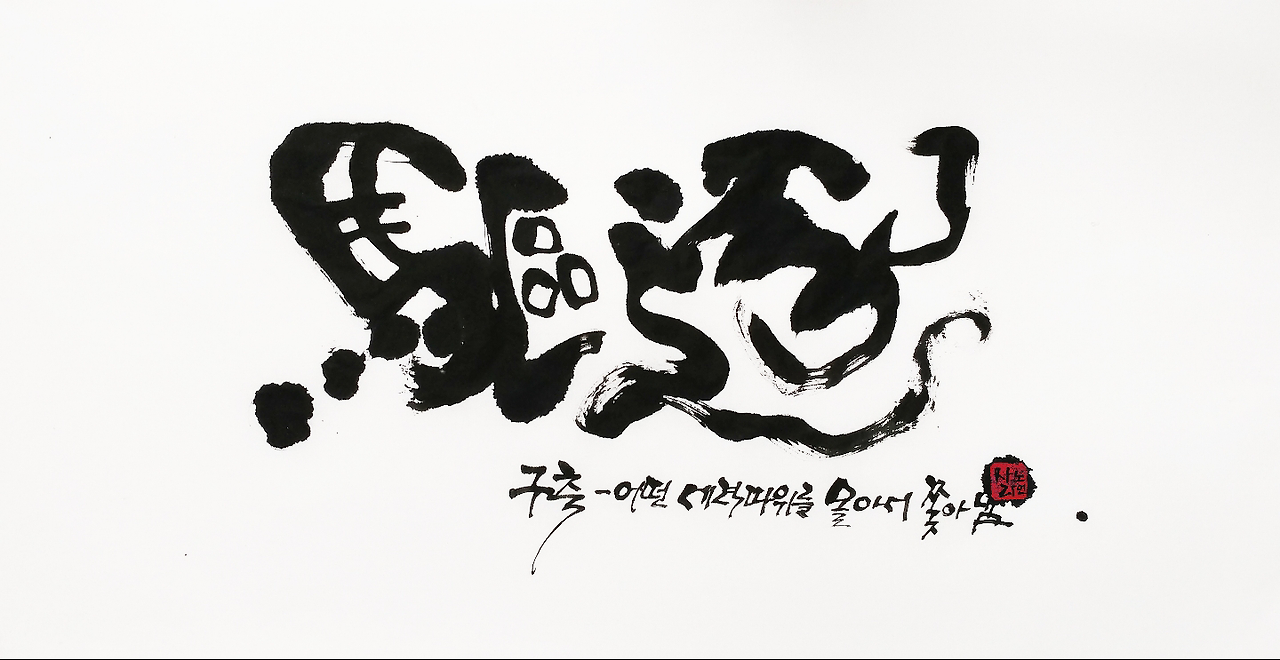 驅逐
구축 - 어떤 세력따위를 몰아서 쫓아냄